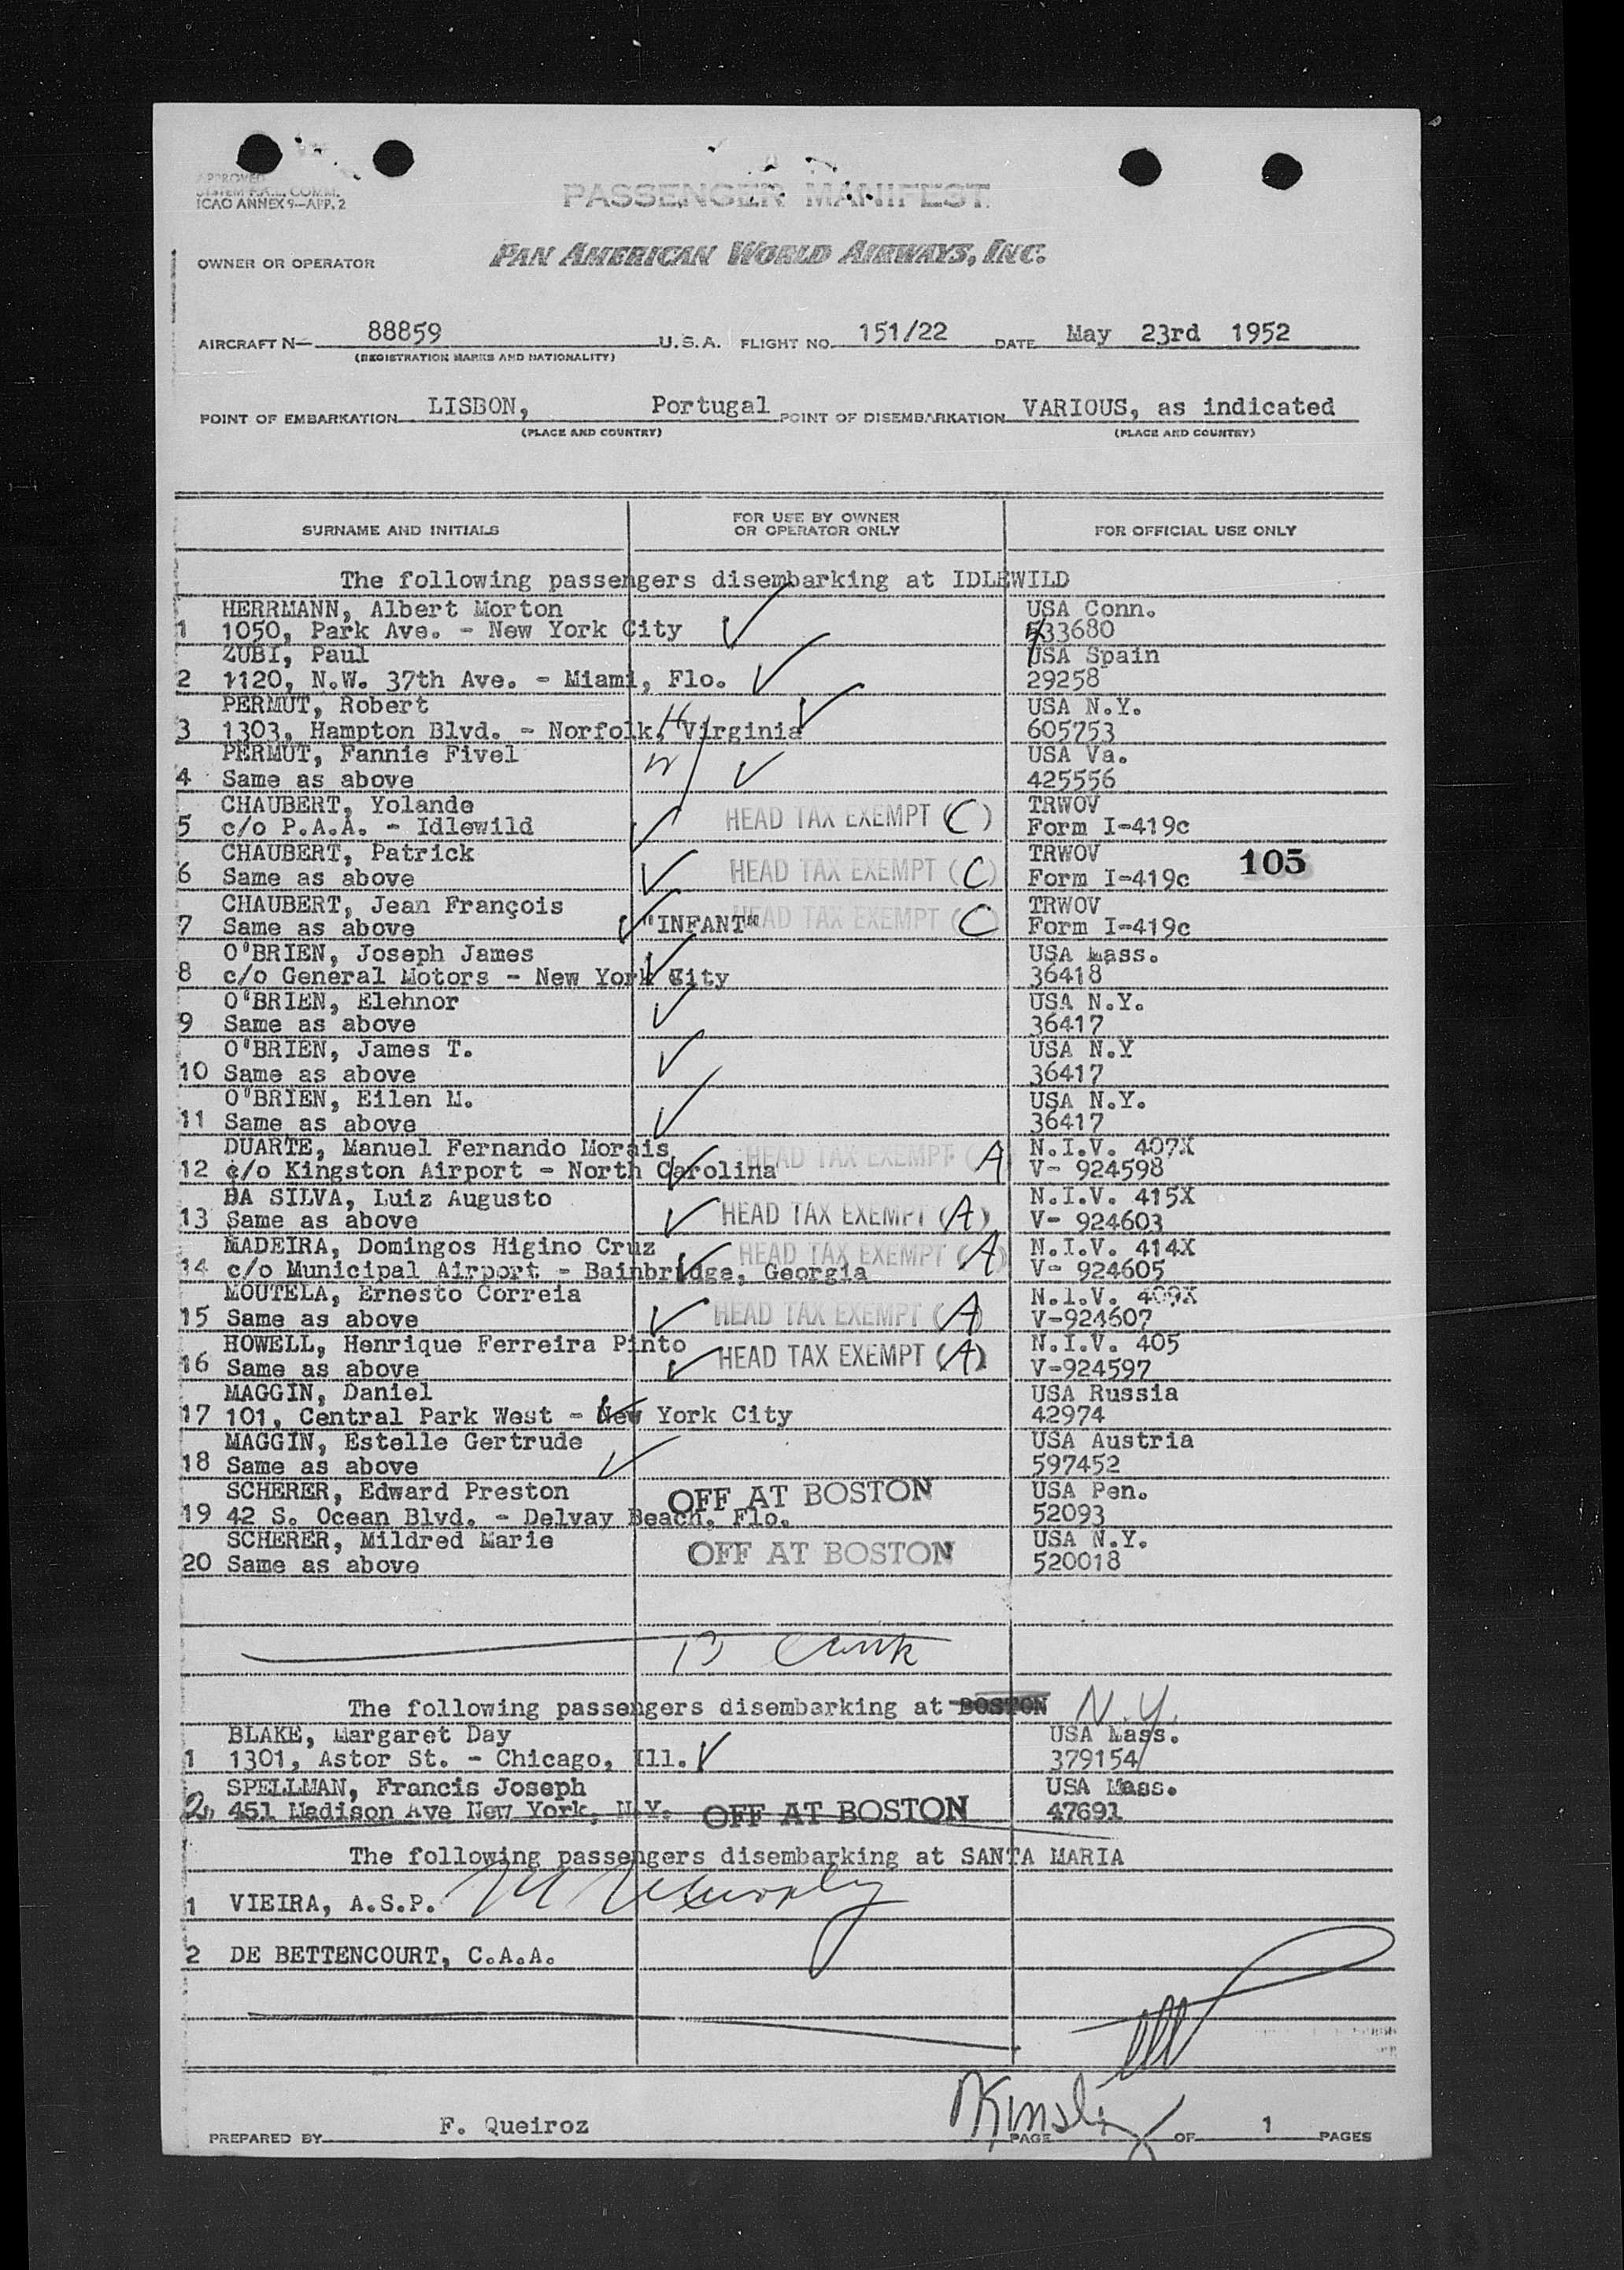 APPROVED
SYSTEM F.A.L. COMM.
ICAO ANNEX 9—APP. 2
PASSENGER MANIFEST
OWNER OR OPERATOR PAN AMERICAN WORLD AIRWAYS, INC.
AIRCRAFT N— 88859 U.S.A. FLIGHT NO. 151/22 DATE May 23rd 1952
(REGISTRATION MARKS AND NATIONALITY)
POINT OF EMBARKATION LISBON, Portugal POINT OF DISEMBARKATION VARIOUS, as indicated
(PLACE AND COUNTRY) (PLACE AND COUNTRY)
SURNAME AND INITIALS FOR USE BY OWNER OR OPERATOR ONLY FOR OFFICIAL USE ONLY
The following passengers disembarking at IDLEWILD
HERRMANN, Albert Morton USA Conn.
1 1050, Park Ave. - New York City 533680
ZUBI, Paul USA Spain
2 1120, N.W. 37th Ave. - Miami, Flo. 29258
PERMUT, Robert USA N.Y.
3 1303, Hampton Blvd. - Norfolk, Virginia H 605753
PERMUT, Fannie Fivel USA Va.
4 Same as above W 425556
CHAUBERT, Yolande HEAD TAX EXEMPT (C) TRWOV
5 c/o P.A.A. - Idlewild Form I-419c
CHAUBERT, Patrick HEAD TAX EXEMPT (C) TRWOV 105
6 Same as above Form I-419c
CHAUBERT, Jean François HEAD TAX EXEMPT (C) TRWOV
7 Same as above "INFANT" Form I-419c
O'BRIEN, Joseph James USA Mass.
8 c/o General Motors - New York City 36418
O'BRIEN, Elehnor USA N.Y.
9 Same as above 36417
O'BRIEN, James T. USA N.Y
10 Same as above 36417
O'BRIEN, Eilen M. USA N.Y.
11 Same as above 36417
DUARTE, Manuel Fernando Morais HEAD TAX EXEMPT (A N.I.V. 407X
12 c/o Kingston Airport - North Carolina V- 924598
DA SILVA, Luiz Augusto HEAD TAX EXEMPT (A) N.I.V. 415X
13 Same as above V- 924603
MADEIRA, Domingos Higino Cruz HEAD TAX EXEMPT (A) N.I.V. 414X
14 c/o Municipal Airport - Bainbridge, Georgia V- 924605
MOUTELA, Ernesto Correia HEAD TAX EXEMPT (A) N.I.V. 409X
15 Same as above V-924607
HOWELL, Henrique Ferreira Pinto HEAD TAX EXEMPT (A) N.I.V. 405
16 Same as above V-924597
MAGGIN, Daniel USA Russia
17 101, Central Park West - New York City 42974
MAGGIN, Estelle Gertrude USA Austria
18 Same as above 597452
SCHERER, Edward Preston OFF AT BOSTON USA Pen.
19 42 S. Ocean Blvd. - Delvay Beach, Flo. 52093
SCHERER, Mildred Marie OFF AT BOSTON USA N.Y.
20 Same as above 520018
The following passengers disembarking at BOSTON N.Y.
BLAKE, Margaret Day USA Mass.
1 1301, Astor St. - Chicago, Ill. 379154
SPELLMAN, Francis Joseph USA Mass.
2 451 Madison Ave New York, N.Y. OFF AT BOSTON 47691
The following passengers disembarking at SANTA MARIA
1 VIEIRA, A.S.P.
2 DE BETTENCOURT, C.A.A.
PREPARED BY F. Queiroz PAGE OF 1 PAGES